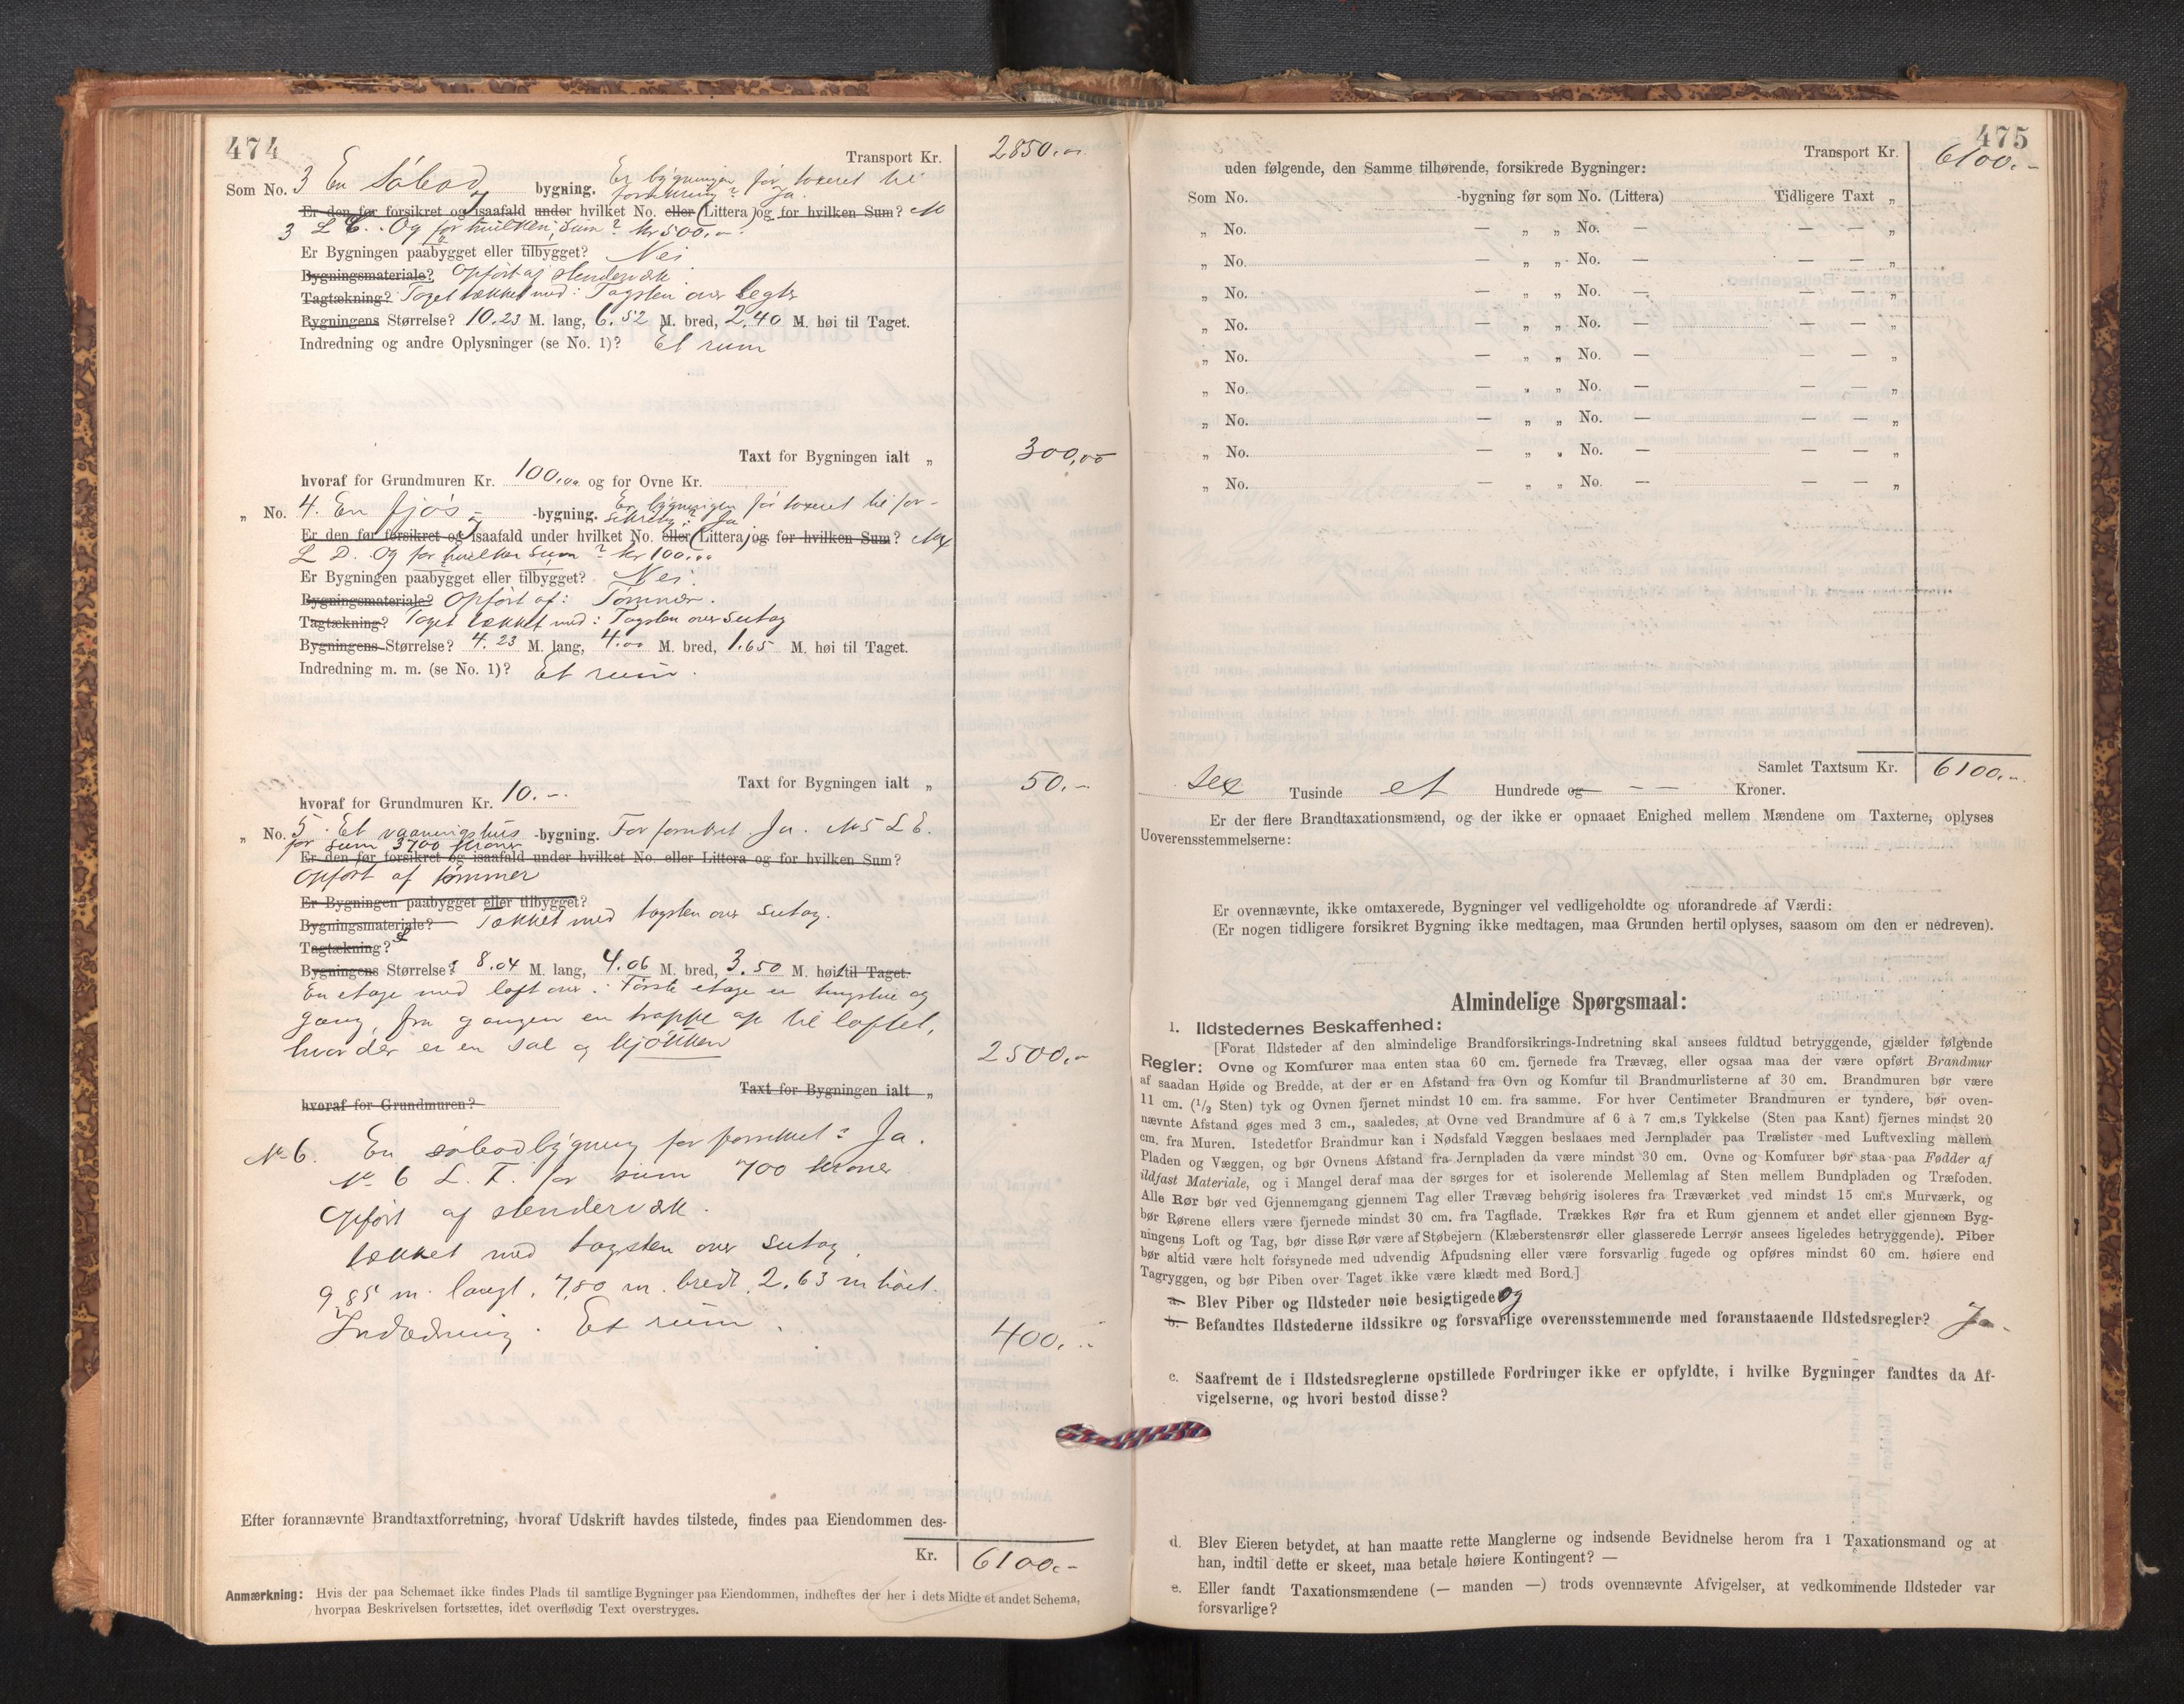 474
Transport Kr. 2850.00
Som No. 3 En Söbod bygning. Er bygningen før taxeret til
forsikring? Ja.
Er den før forsikret og isaafald under hvilket No. eller (Littera) og for hvilken Sum? No
3 L C. Og for hvilken sum? Kr 500.-
Er Bygningen paabygget eller tilbygget? Nei
Bygningsmateriale? Opført af stendervæk
Tagtækning? Taget tækket med: Tagsten over legter
Bygningens Størrelse? 10.23 M. lang, 6.52 M. bred, 2.40 M. høi til Taget.
Indredning og andre Oplysninger (se No. 1)? Et rum
Taxt for Bygningen ialt „ 300,00
hvoraf for Grundmuren Kr. 100.00 og for Ovne Kr.
„ No. 4. En fjös -bygning. Er bygningen før taxeret til for-
sikring? Ja
Er den før forsikret og isaafald under hvilket No. eller (Littera) og for hvilken Sum? No 4
L D. Og for hvilken sum? Kr 100.00
Er Bygningen paabygget eller tilbygget? Nei.
Bygningsmateriale? Opført af: Tømmer.
Tagtækning? Taget tækket med: Tagsten over sutag
Bygningens Størrelse? 4.23 M. lang, 4.00 M. bred, 1.65 M. høi til Taget.
Indredning m. m. (se No. 1)? Et rum.
Taxt for Bygningen ialt „ 50.-
hvoraf for Grundmuren Kr. 10.-
„ No. 5. Et vaaningshus -bygning. Før forsikret Ja. No 5 L E.
for sum 3700 Kroner
Er den før forsikret og isaafald under hvilket No. eller Littera og for hvilken Sum?
Opført af tømmer
Er Bygningen paabygget eller tilbygget?
Bygningsmateriale? Tækket med tagsten over sutag.
Tagtækning?
Bygningens Størrelse? 8.04 M. lang, 4.06 M. bred, 3.50 M. høi til Taget.
En etage med loft over. Første etage er stue og
gang, fra gangen en trappe op til loftet,
hvor der er en sal og kjökken 2500.-
Taxt for Bygningen ialt „
hvoraf for Grundmuren?
No 6. En söbodbygning før forsikret? Ja.
No 6 L. F. for sum 700 Kroner
Opført af stendervæk.
tækket med tagsten over sutag.
9,85 m. langt, 7,80 m. bredt, 2,63 m høit.
Indredning. Et rum. 400.-
Efter forannævnte Brandtaxtforretning, hvoraf Udskrift havdes tilstede, findes paa Eiendommen des-
Kr. 6100.-
Anmærkning: Hvis der paa Schemaet ikke findes Plads til samtlige Bygninger paa Eiendommen, indheftes der her i dets Midte et andet Schema,
hvorpaa Beskrivelsen fortsættes, idet overflødig Text overstryges.
475
Transport Kr. 6100.-
uden følgende, den Samme tilhørende, forsikrede Bygninger:
Som No. -bygning før som No. (Littera) Tidligere Taxt „
„ No. — „ „ No. — — — „
„ No. — „ „ No. — — — „
„ No. — „ „ No. — — — „
„ No. — „ „ No. — — — „
„ No. — „ „ No. — — — „
„ No. — „ „ No. — — — „
„ No. — „ „ No. — — — „
„ No. — „ „ No. — — — „
„ No. — „ „ No. — — — „
Samlet Taxtsum Kr. 6100.-
sex Tusinde et Hundrede og — — Kroner.
Er der flere Brandtaxationsmænd, og der ikke er opnaaet Enighed mellem Mændene om Taxterne, oplyses
Uoverensstemmelserne:
Er ovennævnte, ikke omtaxerede, Bygninger vel vedligeholdte og uforandrede af Værdi:
(Er nogen tidligere forsikret Bygning ikke medtagen, maa Grunden hertil oplyses, saasom om den er nedreven).
Almindelige Spørgsmaal:
1. Ildstedernes Beskaffenhed:
[Forat Ildsteder af den almindelige Brandforsikrings-Indretning skal ansees fuldtud betryggende, gjælder følgende
Regler: Ovne og Komfurer maa enten staa 60 cm. fjernede fra Trævæg, eller ogsaa maa der være opført Brandmur
af saadan Høide og Bredde, at der er en Afstand fra Ovn og Komfur til Brandmurlisterne af 30 cm. Brandmuren bør være
11 cm. (1/2 Sten) tyk og Ovnen fjernet mindst 10 cm. fra samme. For hver Centimeter Brandmuren er tyndere, bør oven-
nævnte Afstand øges med 3 cm., saaledes, at Ovne ved Brandmure af 6 à 7 cm.s Tykkelse (Sten paa Kant) fjernes mindst 20
cm. fra Muren. Istedetfor Brandmur kan i Nødsfald Væggen beslaaes med Jernplader paa Trælister med Luftvexling mellem
Pladen og Væggen, og bør Ovnens Afstand fra Jernpladen da være mindst 30 cm. Ovne og Komfurer bør staa paa Fødder af
ildfast Materiale, og i Mangel deraf maa der sørges for et isolerende Mellemlag af Sten mellem Bundpladen og Træfoden.
Alle Rør bør ved Gjennemgang gjennem Tag eller Trævæg behørig isoleres fra Træværket ved mindst 15 cm.s Murværk, og
bør Rørene ellers være fjernede mindst 30 cm. fra Tagflade. Trækkes Rør fra et Rum gjennem et andet eller gjennem Byg-
ningens Loft og Tag, bør disse Rør være af Støbejern (Klæberstensrør eller glasserede Lerrør ansees ligeledes betryggende). Piber
bør altid være helt forsynede med udvendig Afpudsning eller være forsvarlig fugede og opføres mindst 60 cm. høiere end
Tagryggen, og bør Piben over Taget ikke være klædt med Bord.]
a. Blev Piber og Ildsteder nøie besigtigede og
b. Befandtes Ildstederne ildssikre og forsvarlige overensstemmende med foranstaaende Ildstedsregler? Ja.
c. Saafremt de i Ildstedsreglerne opstillede Fordringer ikke er opfyldte, i hvilke Bygninger fandtes da Af-
vigelserne, og hvori bestod disse?
d. Blev Eieren betydet, at han maatte rette Manglerne og indsende Bevidnelse herom fra 1 Taxationsmand og at
han, indtil dette er skeet, maa betale høiere Kontingent? —
e. Eller fandt Taxationsmændene (— manden —) trods ovennævnte Afvigelser, at vedkommende Ildsteder var
forsvarlige?